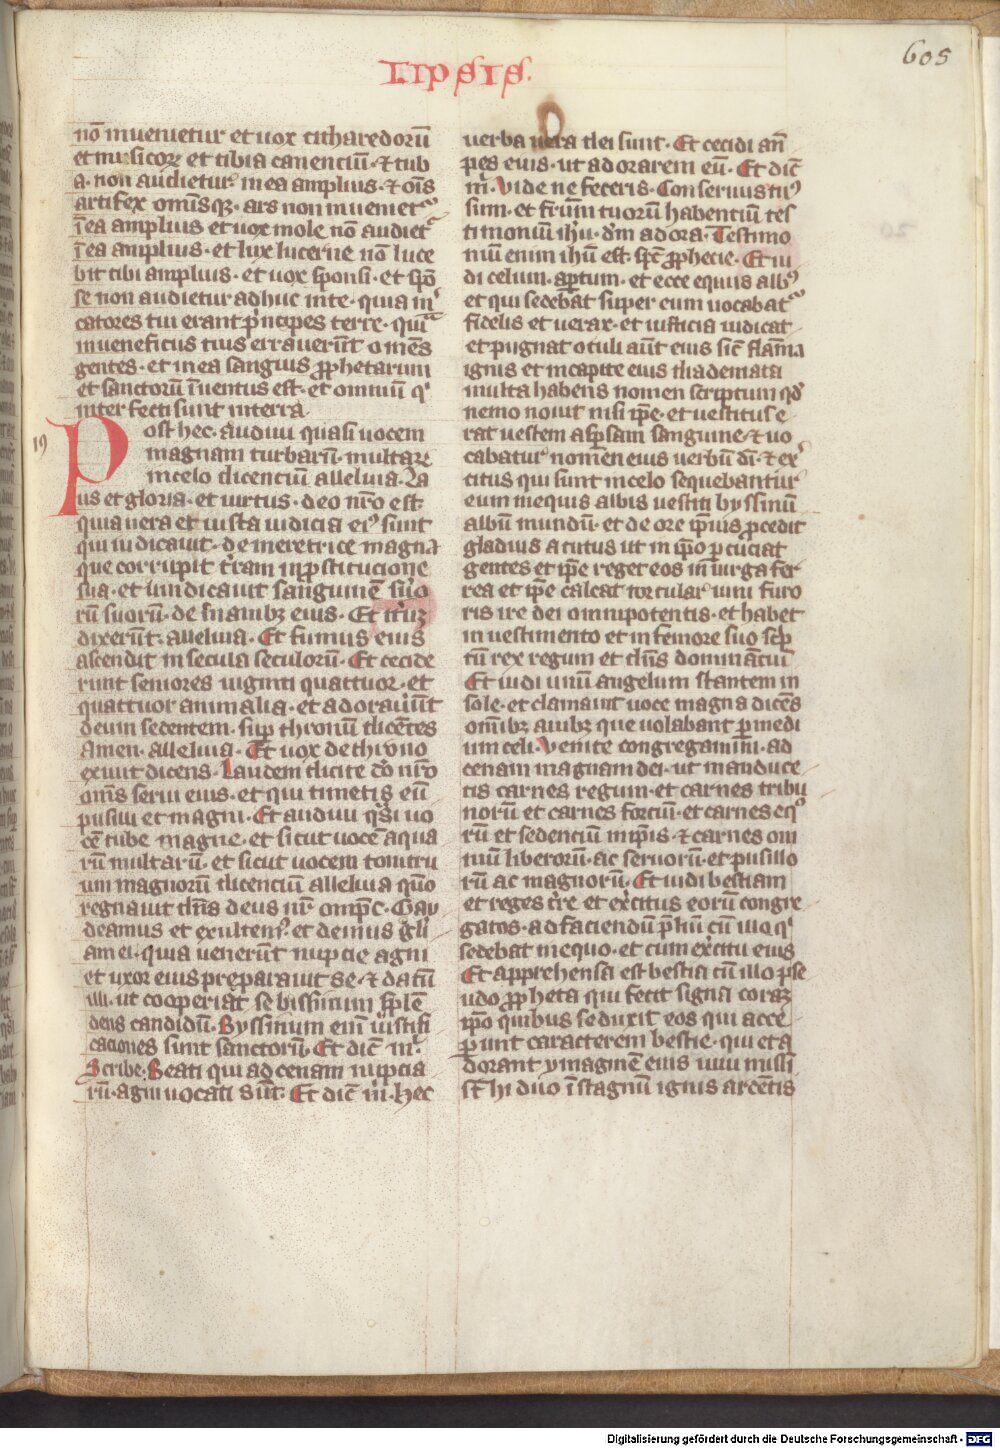 LIPSIS.
605
nō inuenietur et uox citharedoruū
et musicoꝝ et tibia canenciū· ⁊ tub
a· non audietur in ea amplius· ⁊ oīs
artifex omīsqꝫ· ars non inuenietᷣ
ī ea amplius et uox mole nō audietᷣ
ī ea amplius· et lux lucerne nō luce
bit tibi amplius· et uox sponsi· et spō
se non audietur adhuc in te· quia m̄
catores tui erant pͥncipes terre· quīa
in ueneficiis tuis errauerūt om̄es
gentes· et in ea sanguis ꝓphetarum
et sanctorū īuentus est· et omniū qͥ
interfecti sunt in terra
19
Post hec· audiui quasi uocem
magnam turbarū· multaꝝ
in celo dicenciū alleluia· La
us et gloria· et uirtus· deo nr̄o est
quia uera et iusta iudicia eiꝰ sunt
qui iudicauit· de meretrice magna
que corrupit tr̄am in ꝓstitucione
sua· et uindicauit sanguinē suo
rū suorū· de manibꝫ eius· Et itͥuꝫ
dixerūt· alleluia· Et fumus eius
ascendit in secula seculorū· Et cecide
runt seniores uiginti quattuor· et
quattuor animalia· et adorauūt
deum sedentem· suꝑ thronum dicētes
amen· alleluia· Et uox de throno
exiuit dicens· Laudem dicite dō nr̄o
om̄s serui eius· et qui timetis eū
pusilli et magni· Et audiui qͣsi uo
cē tube magne· et sicut uocē aqua
rū multarū· et sicut uocem tonitru
um magnorū dicenciū alleluia qm̄o
regnauit dn̄s deus nr̄ omp̄c· Gau
deamus et exultemꝰ et demus gl̄i
am ei· quia uenerūt nupcie agni
et uxor eius preparauit se· ⁊ datū
illi· ut cooperiat se bissinum splē
dens candidū· Byssinum eni᷒ iustifi
caciones sunt sanctorū· Et dic̄ m̄·
Scribe· Beati qui ad cenam nupcia
rū· agni uocati sūt· Et dic̄ m̄· hec
uerba uera dei sunt· Et cecidi an̄
pes eius· ut adorarem eū· Et dic̄
m̄· Vide ne feceris· Conseruus tuꝰ
sum· et fr̄um tuorū habentiū tes
timoniū ihū· dm̄ adora· Testimo
niū enim ihū est· spc̄ ꝓphecie· Et ui
di celum· aꝑtum· et ecce equus albꝰ
et qui sedebat super eum uocabatᷣ
fidelis et uerax· et iusticia iudicat
et pugnat oculi aūt eius sic̄ flam̄a
ignis et in capite eius diademata
multa habens nomen scriptum qd̄
nemo nouit nisi ip̄e· et uestitus e
rat uestem aspsam sanguine· ⁊ uo
cabaturᷣ nomen eius uerbū dī· ⁊ exͥ
citus qui sunt in celo sequebanturᷣ
eum in equis albis uestiti byssinū
albū mundū· et de ore ip̄ius ꝓcedit
gladius acutus ut in ip̄o ꝑcuciat
gentes et ip̄e reget eos in uirga fer
rea et ip̄e calcat torcularᷣ uini furo
ris ire dei omnipotentis· et habet
in uestimento et in femore suo scͥp
tū rex regum et dn̄s dominātiū
Et uidi unū angelum stantem in
sole· et clamauit uoce magna dicēs
omībꝫ auibꝫ que uolabant ꝑ medi
um celi· Venite congregamini· ad
cenam magnam dei· ut manduce
tis carnes regum· et carnes tribu
norū et carnes forciū· et carnes eqͦ
rū et sedenciū in ip̄is· ⁊ carnes om
niū liberorū· ac seruorū· et pusillo
rū ac magnorū· Et uidi bestiam
et reges tr̄e et exc̄itus eorū congre
gatos· ad faciendū pͤliū cū illo qͥ
sedebat in equo· et cum exc̄itu eius
Et apprehensa est bestia cū illo pse
udo ꝓpheta qui fecit signa coraꝫ
ip̄o quibus seduxit eos qui acce
ꝑunt caracterem bestie· qui et a
dorant ymaginē eius uiui missi
st̄ hi duo ī stagnū ignis arcētis
Digitalisierung gefördert durch die Deutsche Forschungsgemeinschaft - DFG